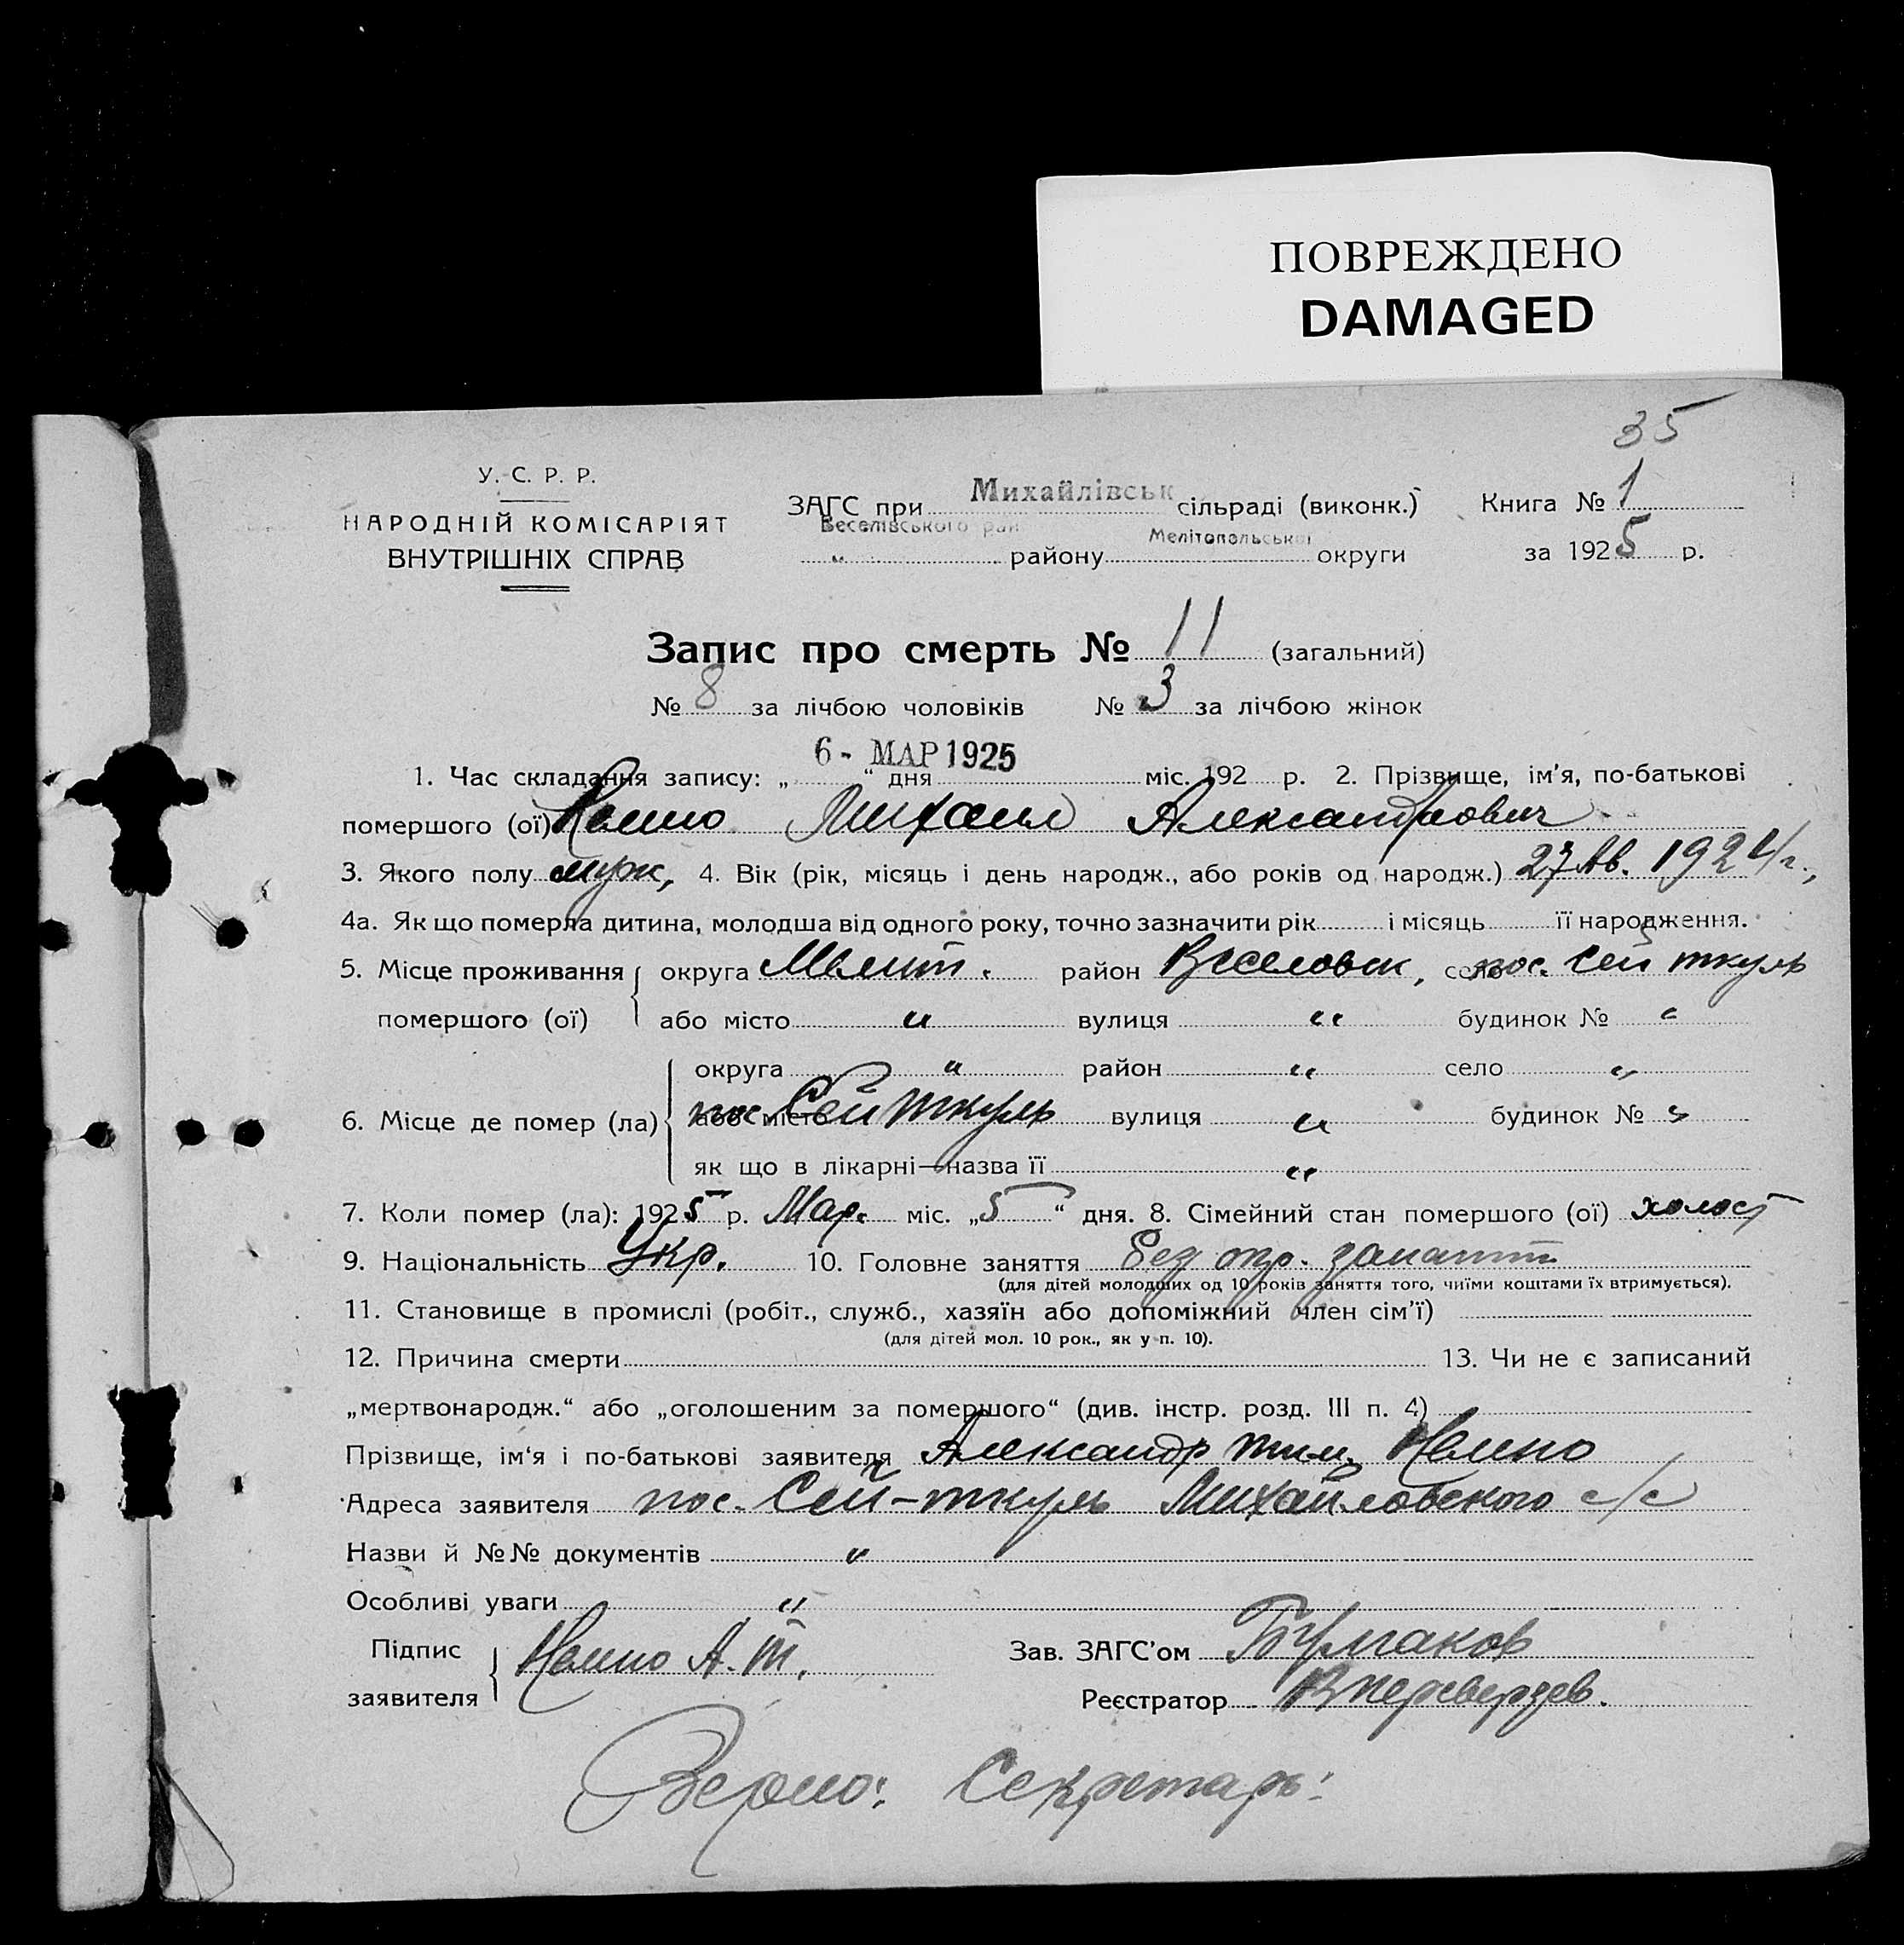 ПОВРЕЖДЕНО
DAMAGED
35
У. С. Р. Р.
НАРОДНІЙ КОМІСАРІЯТ
ВНУТРІШНІХ СПРАВ
ЗАГС при Михайлівськ сільраді (виконк.) Книга № 1
Веселівського рай
„ району Мелітопольської округи за 1925 р.
Запис про смерть № 11 (загальний)
№ 8 за лічбою чоловіків № 3 за лічбою жінок
6 - МАР 1925
1. Час складання запису: „ “ дня міс. 192 р. 2. Прізвище, ім’я, по-батькові
помершого (ої) Михаил Александрович
3. Якого полу муж, 4. Вік (рік, місяць і день народж., або років од народж.) 27 Ав. 1924 г.,
4а. Як що померла дитина, молодша від одного року, точно зазначити рік і місяць її народження.
5. Місце проживання округа Мелит. район Веселовск, село пос. Сей ткуль
помершого (ої) або місто „ вулиця „ будинок № „
округа „ район „ село „
6. Місце де помер (ла) або місто пос. Сей ткуль вулиця „ будинок № „
як що в лікарні—назва її „
7. Коли помер (ла): 1925 р. Мар. міс. „5“ дня. 8. Сімейний стан помершого (ої) холост
9. Національність Укр. 10. Головне заняття без опр. занятт
(для дітей молодших од 10 років заняття того, чиїми коштами їх втримується).
11. Становище в промислі (робіт., служб., хазяїн або допоміжний член сім’ї)
(для дітей мол. 10 рок., як у п. 10).
12. Причина смерти 13. Чи не є записаний
„мертвонародж.“ або „оголошеним за помершого“ (див. інстр. розд. III п. 4)
Прізвище, ім‘я і по-батькові заявителя Александр Тим.
Адреса заявителя пос. Сей-ткуль Михайловского с/с
Назви й №№ документів „
Особливі уваги „
Підпис
заявителя А. Т.
Зав. ЗАГС’ом Булгаков
Реєстратор В Переверзев.
Верно: Секретарь: